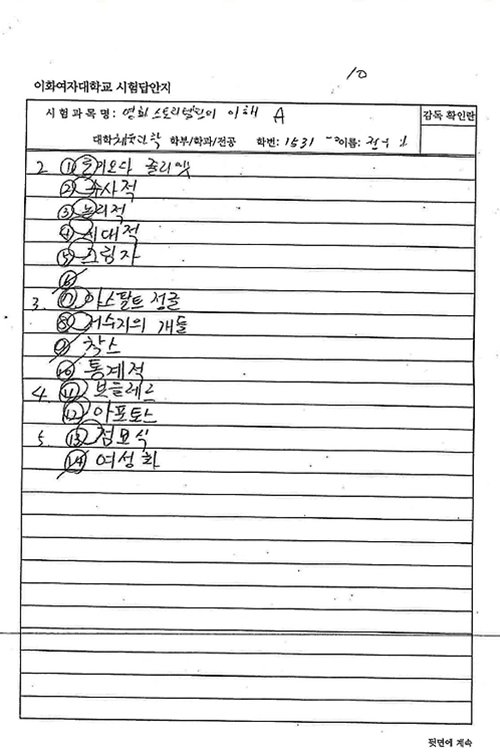 10
이화여자대학교 시험답안지
시험과목명: 영화 스토리텔링의 이해 A
감독 확인란
대학 학부/학과/전공 학번: 1531 이름:
2. ① 줄리엣
② 수사적
③ 논리적
④ 시대적
⑤ 그림자
⑥
3. ⑦ 아스팔트 정글
⑧ 저수지의 개들
⑨ 착스
⑩ 통계적
4. ⑪ 보들레르
⑫ 아포토스
5. ⑬ 점묘식
⑭ 여성화
뒷면에 계속